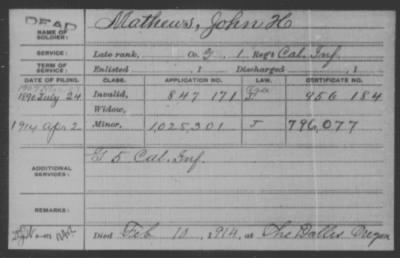 DEAD
NAME OF SOLDIER: Mathews, John H
SERVICE: Late rank, Co. G, 1 Reg't Cal. Inf.
TERM OF SERVICE: Enlisted , 1 Discharged , 1
DATE OF FILING. CLASS. APPLICATION NO. LAW. CERTIFICATE NO.
1890 July 24 Invalid, 847 171 956 184
Widow,
1914 Apr 2 Minor, 1025,301 796,077
ADDITIONAL SERVICES: G 5 Cal. Inf.
REMARKS:
Died Feb 10, 1914, at The Dalles Oregon